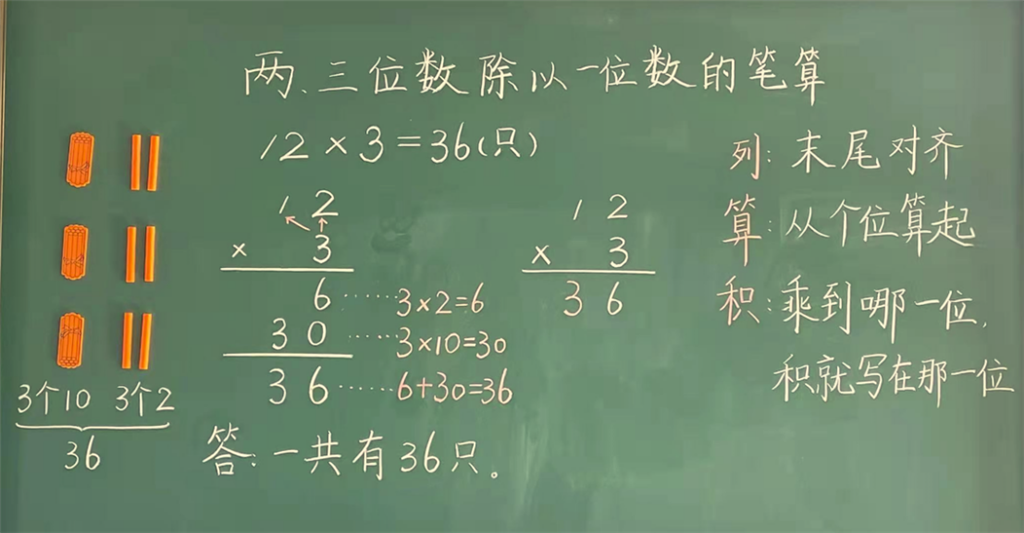 两、三位数除以一位数的笔算
12×3=36(只)
12
× 3
6 ……3×2=6
30 ……3×10=30
36 ……6+30=36
答:一共有36只。
12
× 3
36
3个10 3个2
36
列:末尾对齐
算:从个位算起
积:乘到哪一位,
积就写在那一位